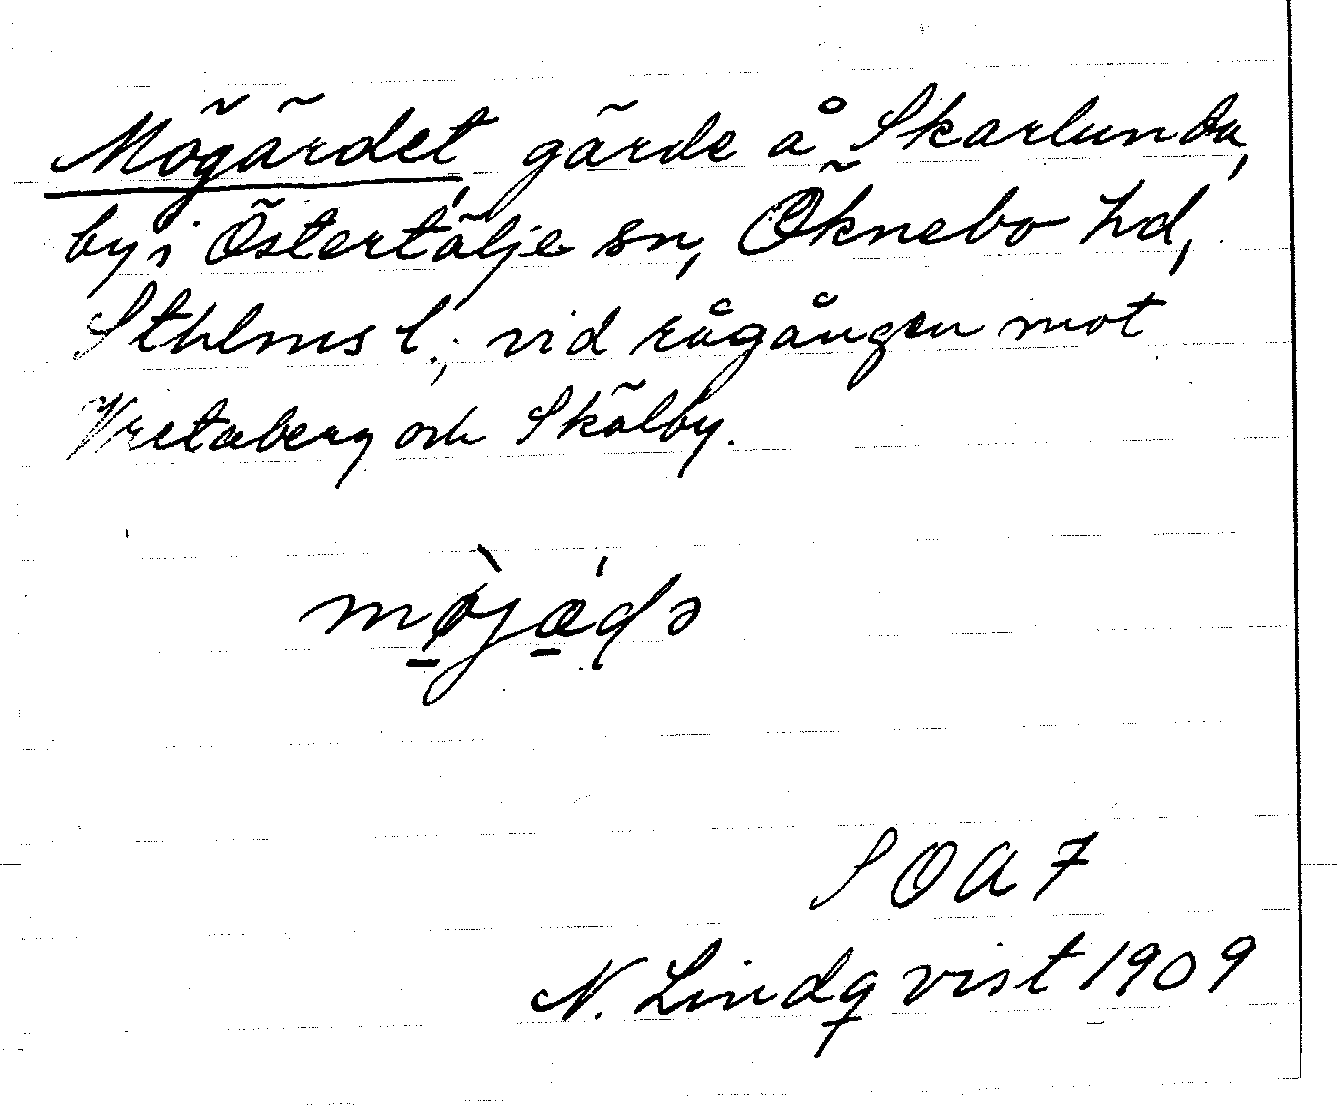 Mögärdet, gärde å Skarlunda,
by i Östertälje sn, Öknebo hd,
Sthlms l.; vid rågången mot
Vretaberg och Skälby.
mø̀jǽdə
SOA 7
N. Lindqvist 1909